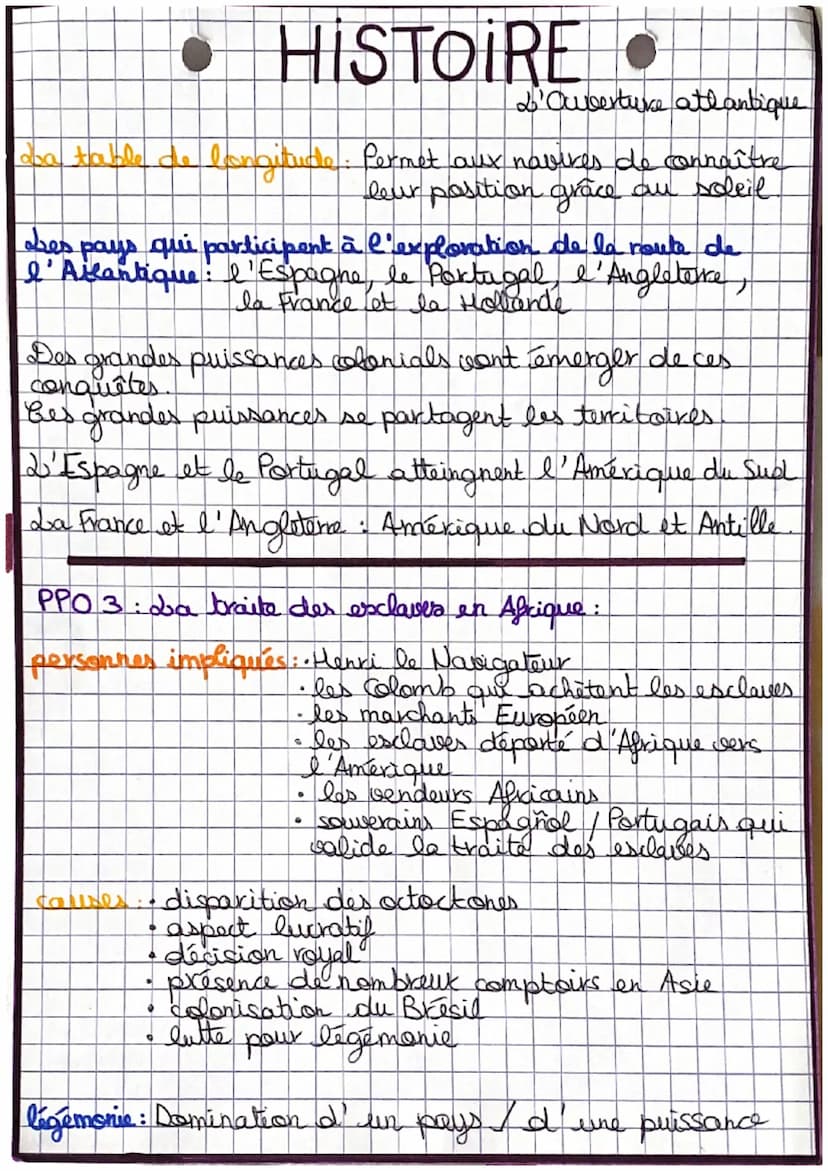 HISTOIRE
L'Ouverture atlantique
La table de longitude : Permet aux navires de connaître
leur position grâce au soleil.
Les pays qui participent à l'exploration de la route de
l'Atlantique : l'Espagne, le Portugal, l'Angleterre,
la France et la Hollande
Des grandes puissances colonials vont émerger de ces
conquêtes.
Ces grandes puissances se partagent les territoires.
L'Espagne et le Portugal atteingnent l'Amérique du Sud
La France et l'Angleterre : Amérique du Nord et Antille.
PPO 3 : La traite des esclaves en Afrique :
personnes impliqués : · Henri le Navigateur
· les Colomb qui achètent les esclaves
· les marchants Européen
· les esclaves déporté d'Afrique vers
l'Amérique
· les vendeurs Africains
· souverains Espagñol / Portugais qui
valide la traité des esclaves
causes : · disparition des octoctones
· aspect lucratif
· décision royal
· présence de nombreux comptoirs en Asie
· colonisation du Brésil
· lutte pour légémonie
légémonie : Domination d'un pays / d'une puissance